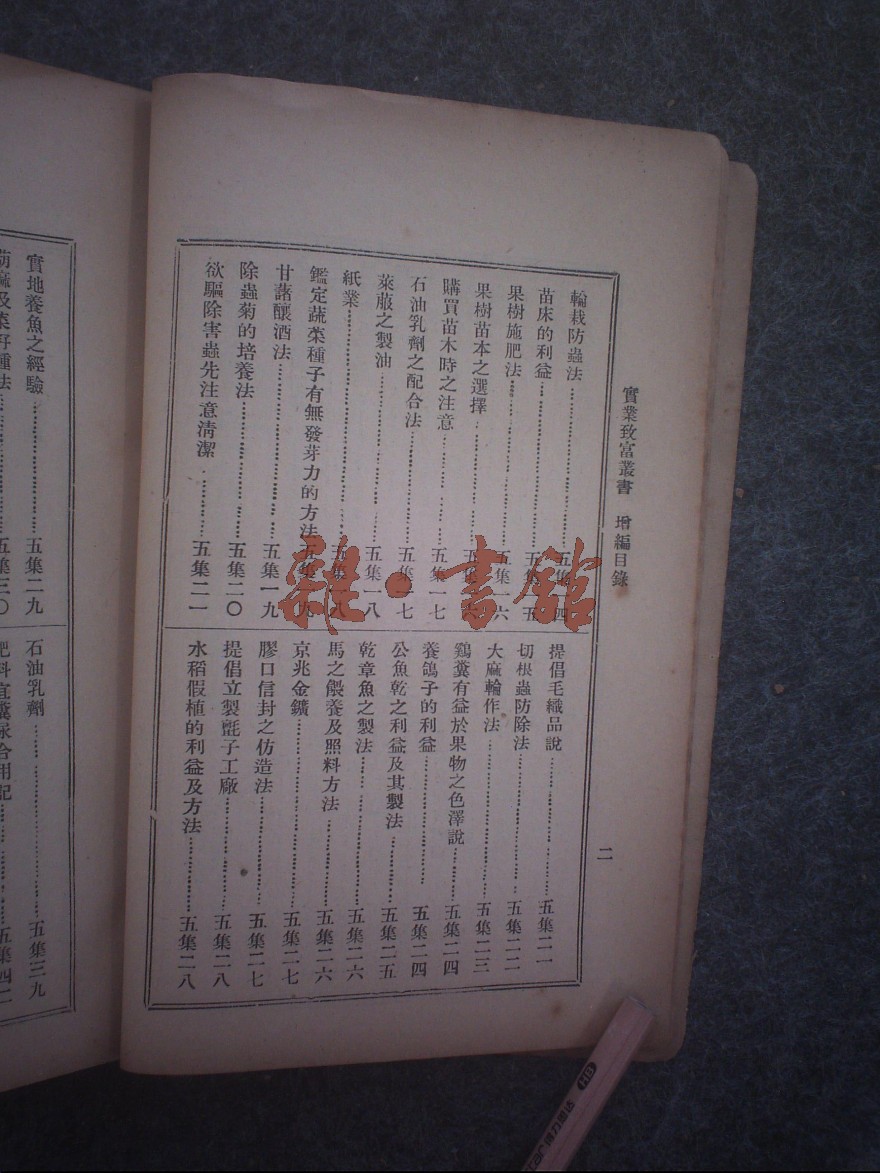 實業致富叢書 增編目錄
二
輪栽防蟲法 五集一四
苗床的利益 五集一五
果樹施肥法 五集一六
果樹苗本之選擇
購買苗木時之注意 五集一七
石油乳劑之配合法 五集一七
萊菔之製油 五集一八
紙業 五集一八
鑑定蔬菜種子有無發芽力的方法 五集一九
甘藷釀酒法 五集一九
除蟲菊的培養法 五集二〇
欲驅除害蟲先注意淸潔 五集二一
提倡毛織品說 五集二一
切根蟲防除法 五集二二
大麻輪作法 五集二三
鷄糞有益於果物之色澤說 五集二四
養鴿子的利益 五集二四
公魚乾之利益及其製法 五集二五
乾章魚之製法 五集二六
馬之餵養及照料方法 五集二六
京兆金鑛 五集二七
膠口信封之仿造法 五集二七
提倡立製氈子工廠 五集二八
水稻假植的利益及方法 五集二八
實地養魚之經驗 五集二九
五集三〇
石油乳劑 五集三九
雜·書館
HB